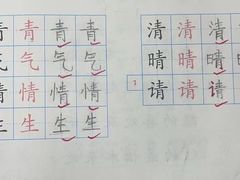 青 青 青 青
气 气 气 气
情 情 情 情
生 生 生 生
清 清 清
晴 晴 晴
请 请 请